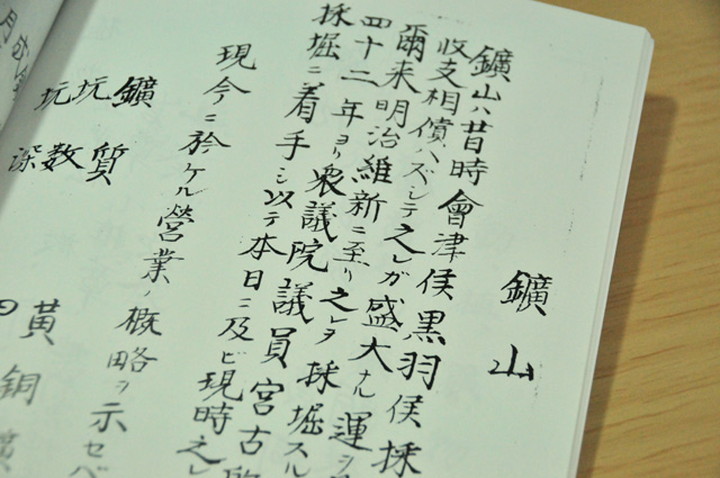 鑛山
鑛山ハ昔時會津侯黒羽侯採
収支相償ハズシテ之レガ盛大ナル運ヲ
爾来明治維新ニ至リ之レヲ採堀スル
四十二年ヨリ衆議院議員宮古啓
採堀ニ着手シ以テ本日ニ及ビ現時之レ
現今ニ於ケル營業ノ概略ヲ示セベ
鑛質 黄銅鑛
坑数
坑深